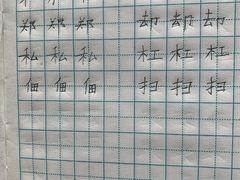 郑 郑 郑 却 却 却
私 私 私 枉 枉 枉
佃 佃 佃 扫 扫 扫